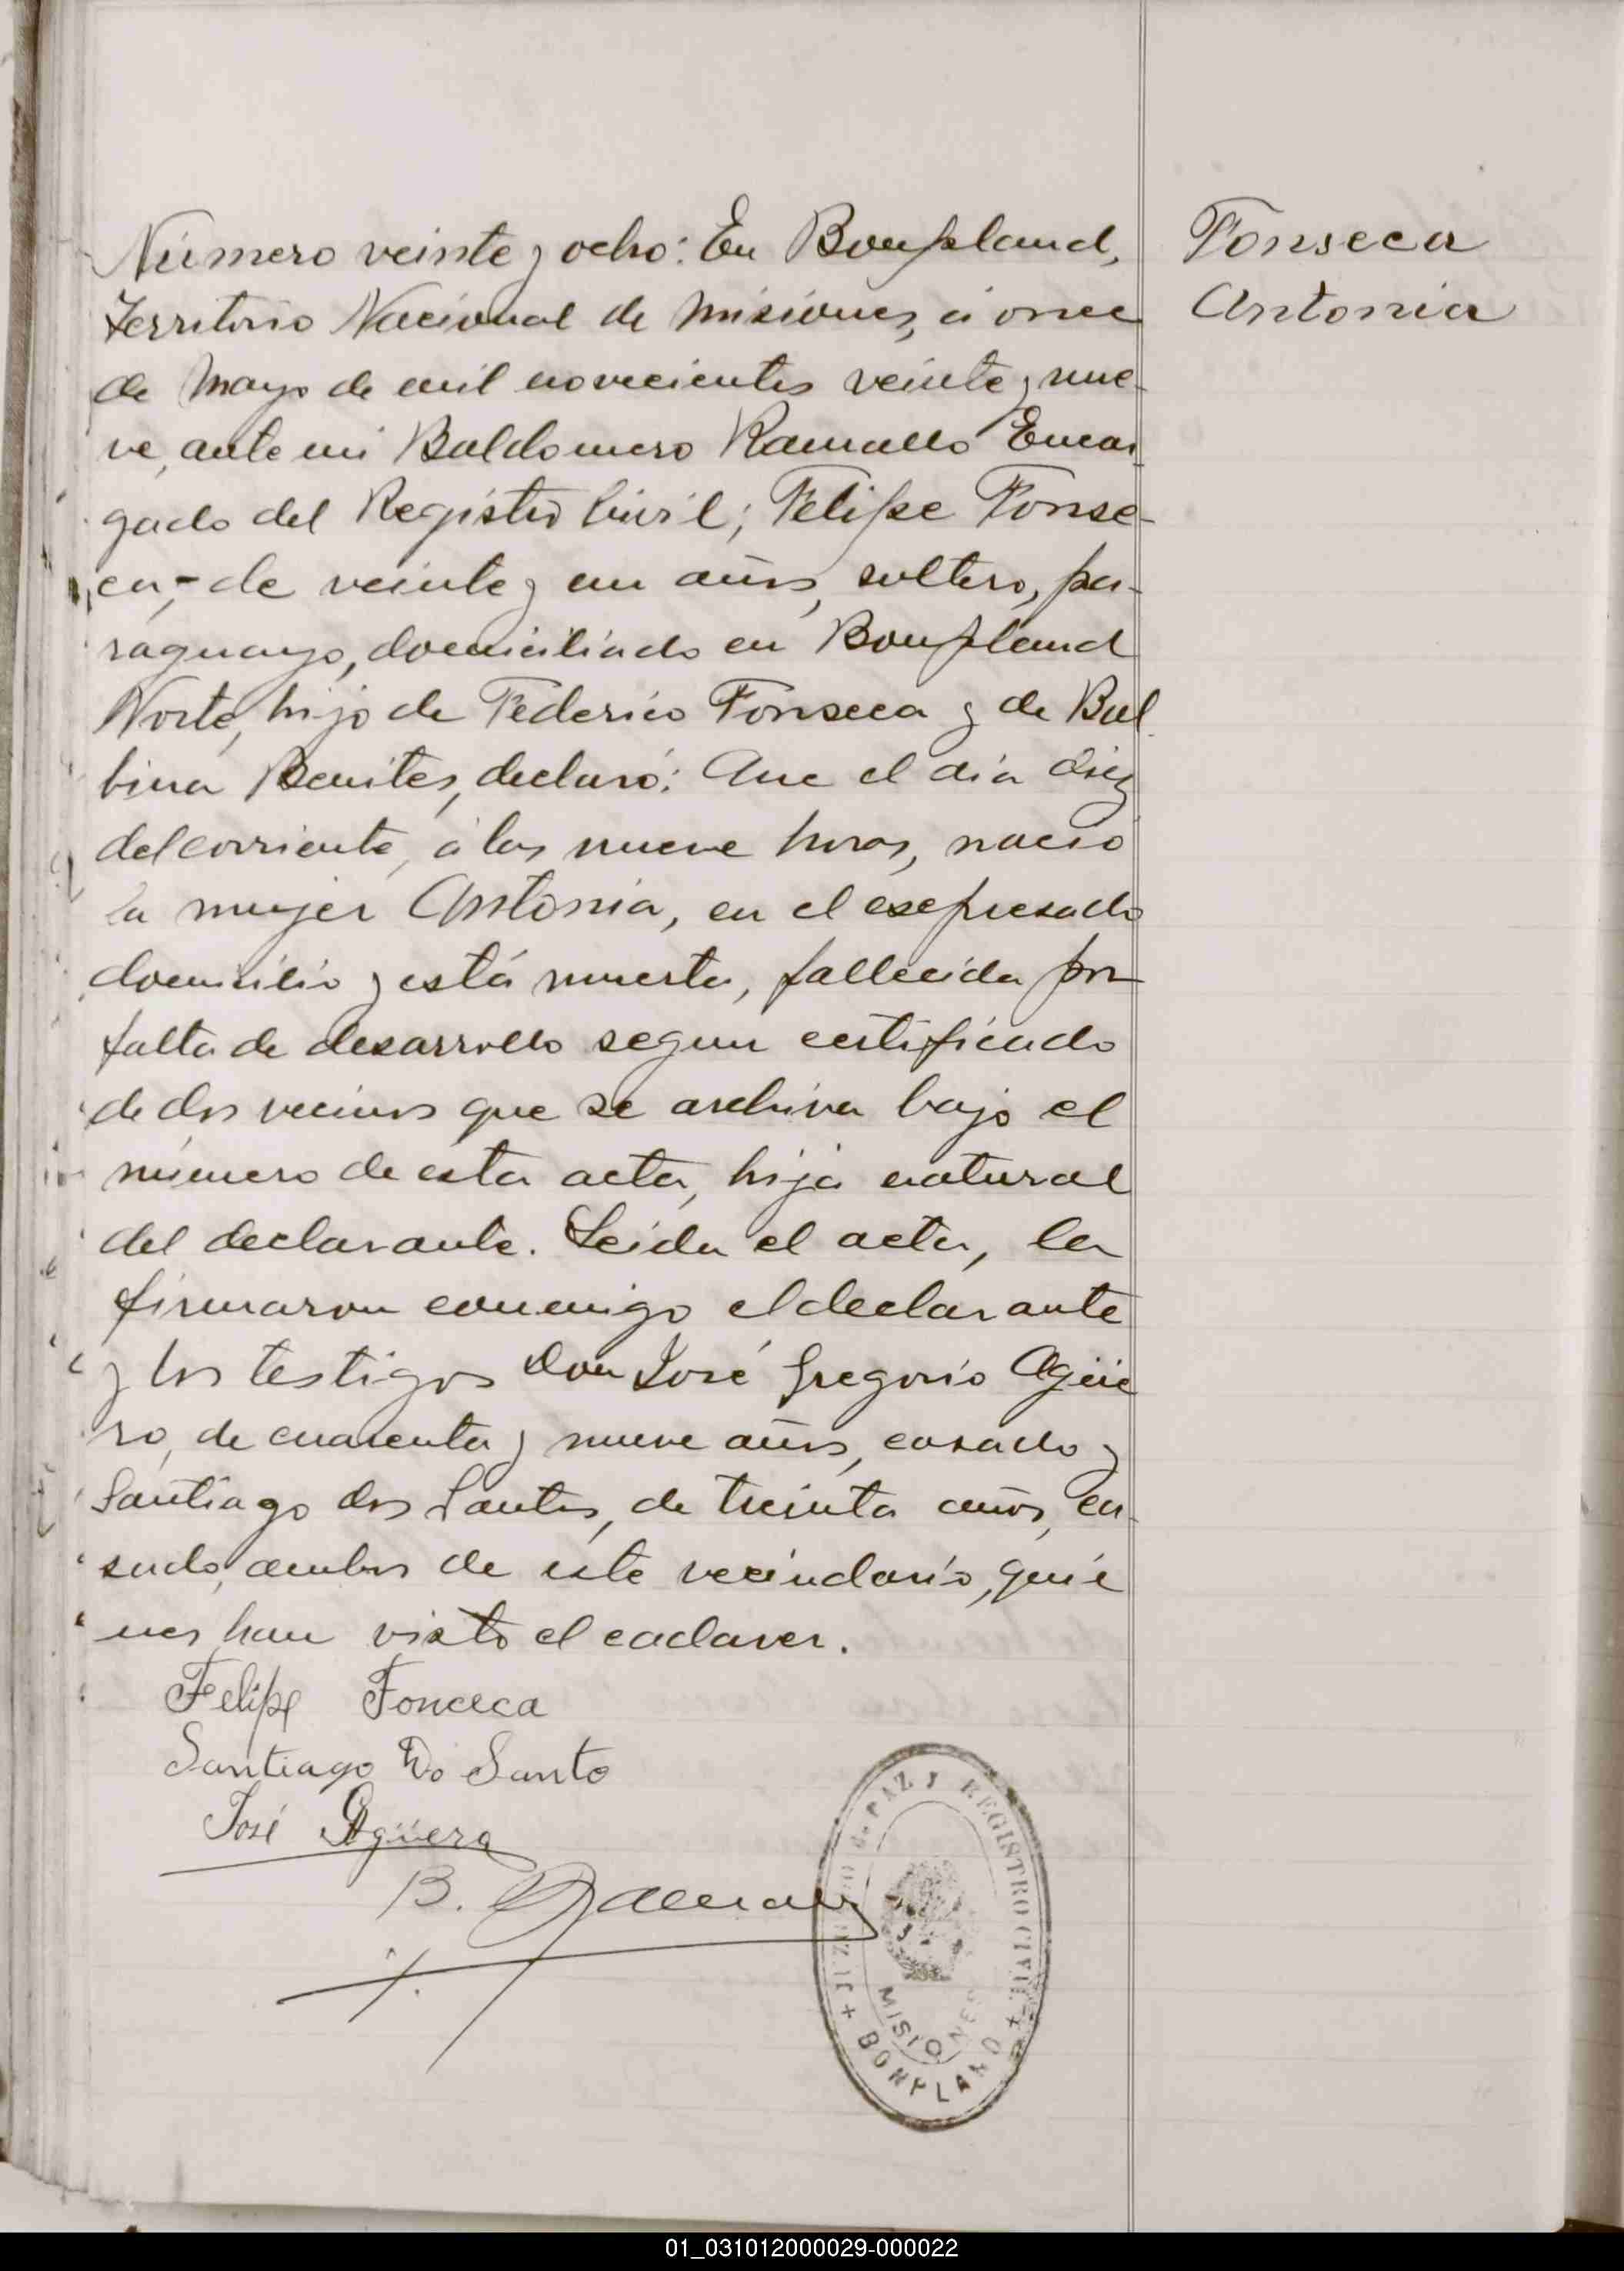 Número veinte y ocho: En Bonpland,
Territorio Nacional de Misiones, á once
de Mayo de mil novecientos veinte y nue-
ve, ante mi Baldomero Ramallo Encar-
gado del Registro Civil; Felipe Fonse-
ca,- de veinte y un años, soltero, pa-
raguayo, domiciliado en Bonpland
Norte, hijo de Federico Fonseca y de Bal-
bina Benites, declaró: Que el día diez
del corriente, á las nueve horas, nació
la mujer Antonia, en el expresado
domicilio y está muerta, fallecida por
falta de desarrollo segun certificado
de dos vecinos que se archiva bajo el
número de esta acta, hija natural
del declarante. Leida el acta, la
firmaron conmigo el declarante
y los testigos Don José Gregorio Agüe
ro, de cuarenta y nueve años, casado y
Santiago dos Santos, de treinta años, ca-
sado, ambos de este vecindario, quie
nes han visto el cadaver.
Felipe Fonceca
Santiago Do Santo
José Agüero
B.
Fonseca
Antonia
JUZGADO de PAZ y REGISTRO CIVIL
MISIONES
+ BONPLAND +
01_031012000029-000022